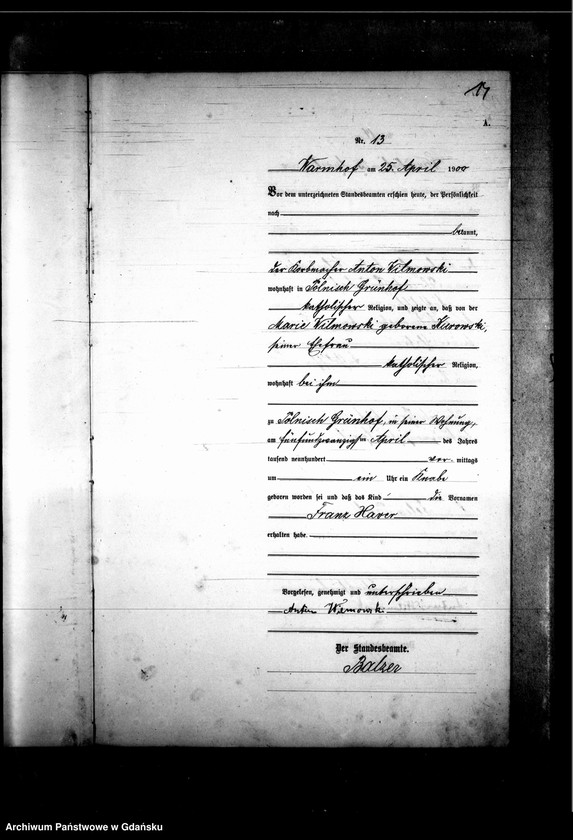 17
A.
Nr. 13
Warmhof am 25. April 1900
Vor dem unterzeichneten Standesbeamten erschien heute, der Persönlichkeit
nach
bekannt,
der Korbmacher Anton Wilmowski
wohnhaft in Polnisch Grünhof
katholischer Religion, und zeigte an, daß von der
Marie Wilmowski geborene Kurowski,
seiner Ehefrau
katholischer Religion,
wohnhaft bei ihm
zu Polnisch Grünhof, in seiner Wohnung,
am fünfundzwanzigsten April des Jahres
tausend neunhundert vor mittags
um ein Uhr ein Knabe
geboren worden sei und daß das Kind die Vornamen
Franz Xaver
erhalten habe.
Vorgelesen, genehmigt und unterschrieben
Anton
Der Standesbeamte.
Balzer
Archiwum Państwowe w Gdańsku